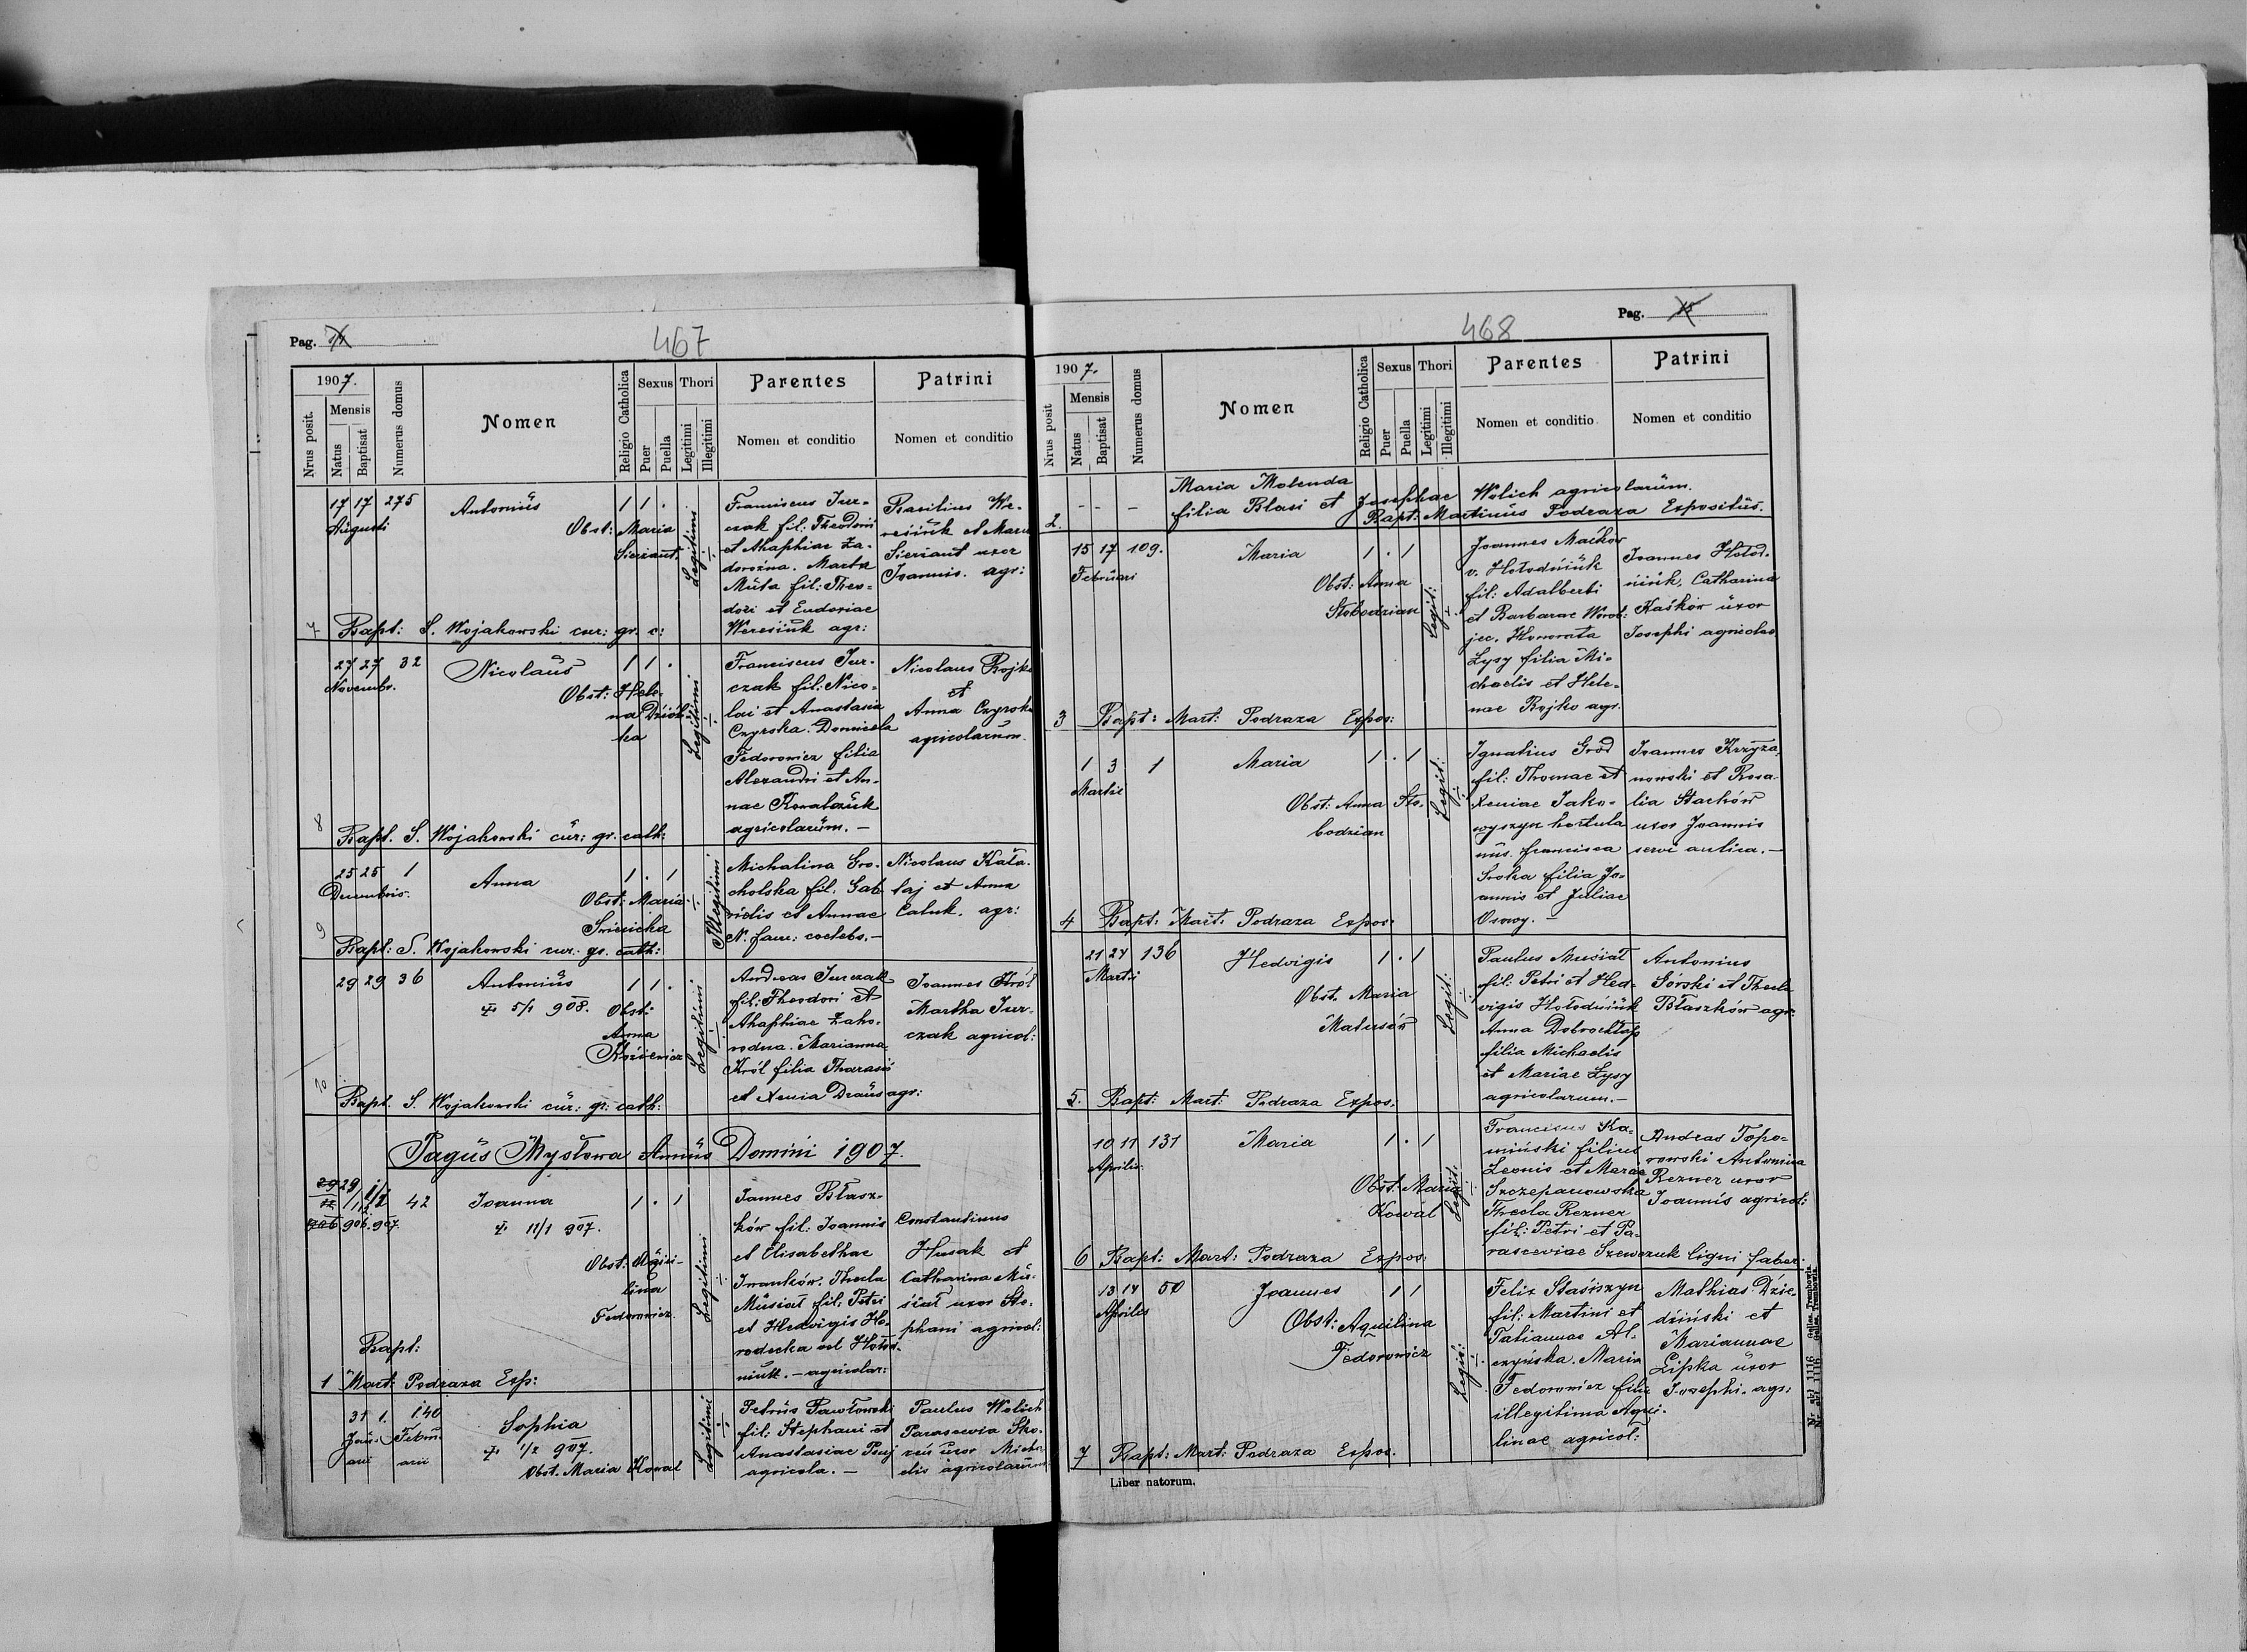 Pag.
467
1907.
Nrus posit.
Mensis
Natus
Baptisat
Numerus domus
Nomen
Religio Catholica
Sexus
Puer
Puella
Thori
Legitimi
Illegitimi
Parentes
Nomen et conditio
Patrini
Nomen et conditio
17 17 275
Augusti
Antonius
1 1 .
Obst: Maria
Sierzant
Legitimi
Franciscus Jur-
czak fil: Theodori
et Ahaphiae Za-
dorożna. Marta
Muta fil: Theo-
dori et Eudoxiae
Weresiuk agr:
Basilius We-
resiuk et Maria
Sierzant uxor
Joannis. agr:
7 Bapt: S. Wojakowski cur: gr. c:
27 27 32
Novembr.
Nicolaus
1 1 .
Obst: Hele-
na
Legitimi
Franciscus Jur-
czak fil: Nico-
lai et Anastasia
Czyrska. Domicela
Fedorowicz filia
Alexandri et An-
nae Kowalczuk
agricolarum. —
Nicolaus Bojko
et
Anna Czyrska
agricolarum.
8 Bapt. S. Wojakowski cur: gr. cath:
25 25 1
Decembris.
Anna
1 . 1
Obst: Maria
Illegitimi
Michalina Gro-
cholska fil. Gab-
rielis et Annae
N. fam: coelebs. —
Nicolaus Kata-
laj et Anna
Caluk. agr:
9 Bapt: S. Wojakowski cur. gr. cath:
29 29 36
Antonius
1 1 .
5/1 908.
Obst:
Anna
Legitimi
Andreas Jurczak
fil: Theodori et
Ahaphiae Zaho-
rodna. Marianna
Król filia Tharasii
et Xenia Draus agr:
Joannes Król
Martha Jur-
czak agricol:
Bapt. S. Wojakowski cur: gr: cath:
Pagus Mysłowa Annus Domini 1907.
29
906. 907.
42
Joanna
1 . 1
11/1 907.
Obst: Aqui-
lina
Fedorowicz.
Legitimi
Joannes Błasz-
ków fil: Joannis
et Elisabethae
Iwanków. Thecla
Musiał fil. Petri
et Hedvigis Ho-
rodecka vel Hołod-
niuk. — agricolar:
Constantinus
Husak et
Catharina Mu-
siał uxor Ste-
phani agricol:
Bapt:
1 Mart: Podraza Exp:
31 1. 140
Janu- Febru-
arii arii
Sophia
1/2 907.
Obst. Maria Kowal
Legitimi
Petrus Pawłowski
fil: Stephani et
Anastasiae
agricola. —
Paulus Wolich
Parascevia
uxor Micha-
elis agricolarum
Pag.
468
1907.
Nrus posit
Mensis
Natus
Baptisat
Numerus domus
Nomen
Religio Catholica
Sexus
Puer
Puella
Thori
Legitimi
Illegitimi
Parentes
Nomen et conditio
Patrini
Nomen et conditio
2. - - -
Maria Molenda
filia Blasi et Josephae Wolich agricolarum.
Bapt: Martinus Podraza Expositus.
15 17 109.
Februari
Maria
1 . 1
Obst: Anna
Słobodzian
Legit:
Joannes Maćków
v. Hołodniuk
fil: Adalberti
et Barbarae Worob-
jec. Honorata
Lysy filia Mi-
chaelis et Hele-
nae Bojko agr.
Joannes Hołod-
niuk, Catharina
Kaśków uxor
Josephi agricolae
3 Bapt: Mart: Podraza Expos:
1 3 1
Martii
Maria
1 . 1
Obst: Anna Sło-
bodzian
Legit:
Ignatius Grod
fil: Thomae et
Xeniae Jako-
wyszyn hortula-
nus. Francisca
Sroka filia Jo-
annis et Juliae
Osowy. —
Joannes Krzyża-
nowski et Rosa-
lia Stachów
uxor Joannis
servi aulica. —
4 Bapt: Mart: Podraza Expos:
21 24 136
Marti
Hedvigis
1 . 1
Obst. Maria
Matusów
Legit:
Paulus Musiał
fil: Petri et Hed-
vigis Hołodniuk
Anna Dobrochłap
filia Michaelis
et Mariae Łysy
agricolarum. —
Antonius
Górski et Thecla
Błaszków agr:
5. Bapt: Mart: Podraza Expos:
10 11 131
Aprilis
Maria
1 . 1
Obst: Maria
Kowal
Legit:
Franciscus Ka-
miński filius
Leonis et Mariae
Szczepanowska
Thecla Rezner
fil: Petri et Pa-
rasceviae Szewczuk ligni faber:
Andreas Topo-
rowski Antonina
Rezner uxor
Joannis agricol:
6 Bapt: Mart: Podraza Expos:
13 14 50
Aprilis
Joannes
1 1
Obst: Aquilina
Fedorowicz
Legit:
Felix Staśiszyn
fil: Martini et
Tatiannae Al-
czyńska. Maria
Fedorowicz filia
illegitima Aqui-
linae agricol:
Mathias Dzie-
dziński et
Mariannae
Lipka uxor
Josephi. agr:
7 Bapt: Mart: Podraza Expos.
Liber natorum.